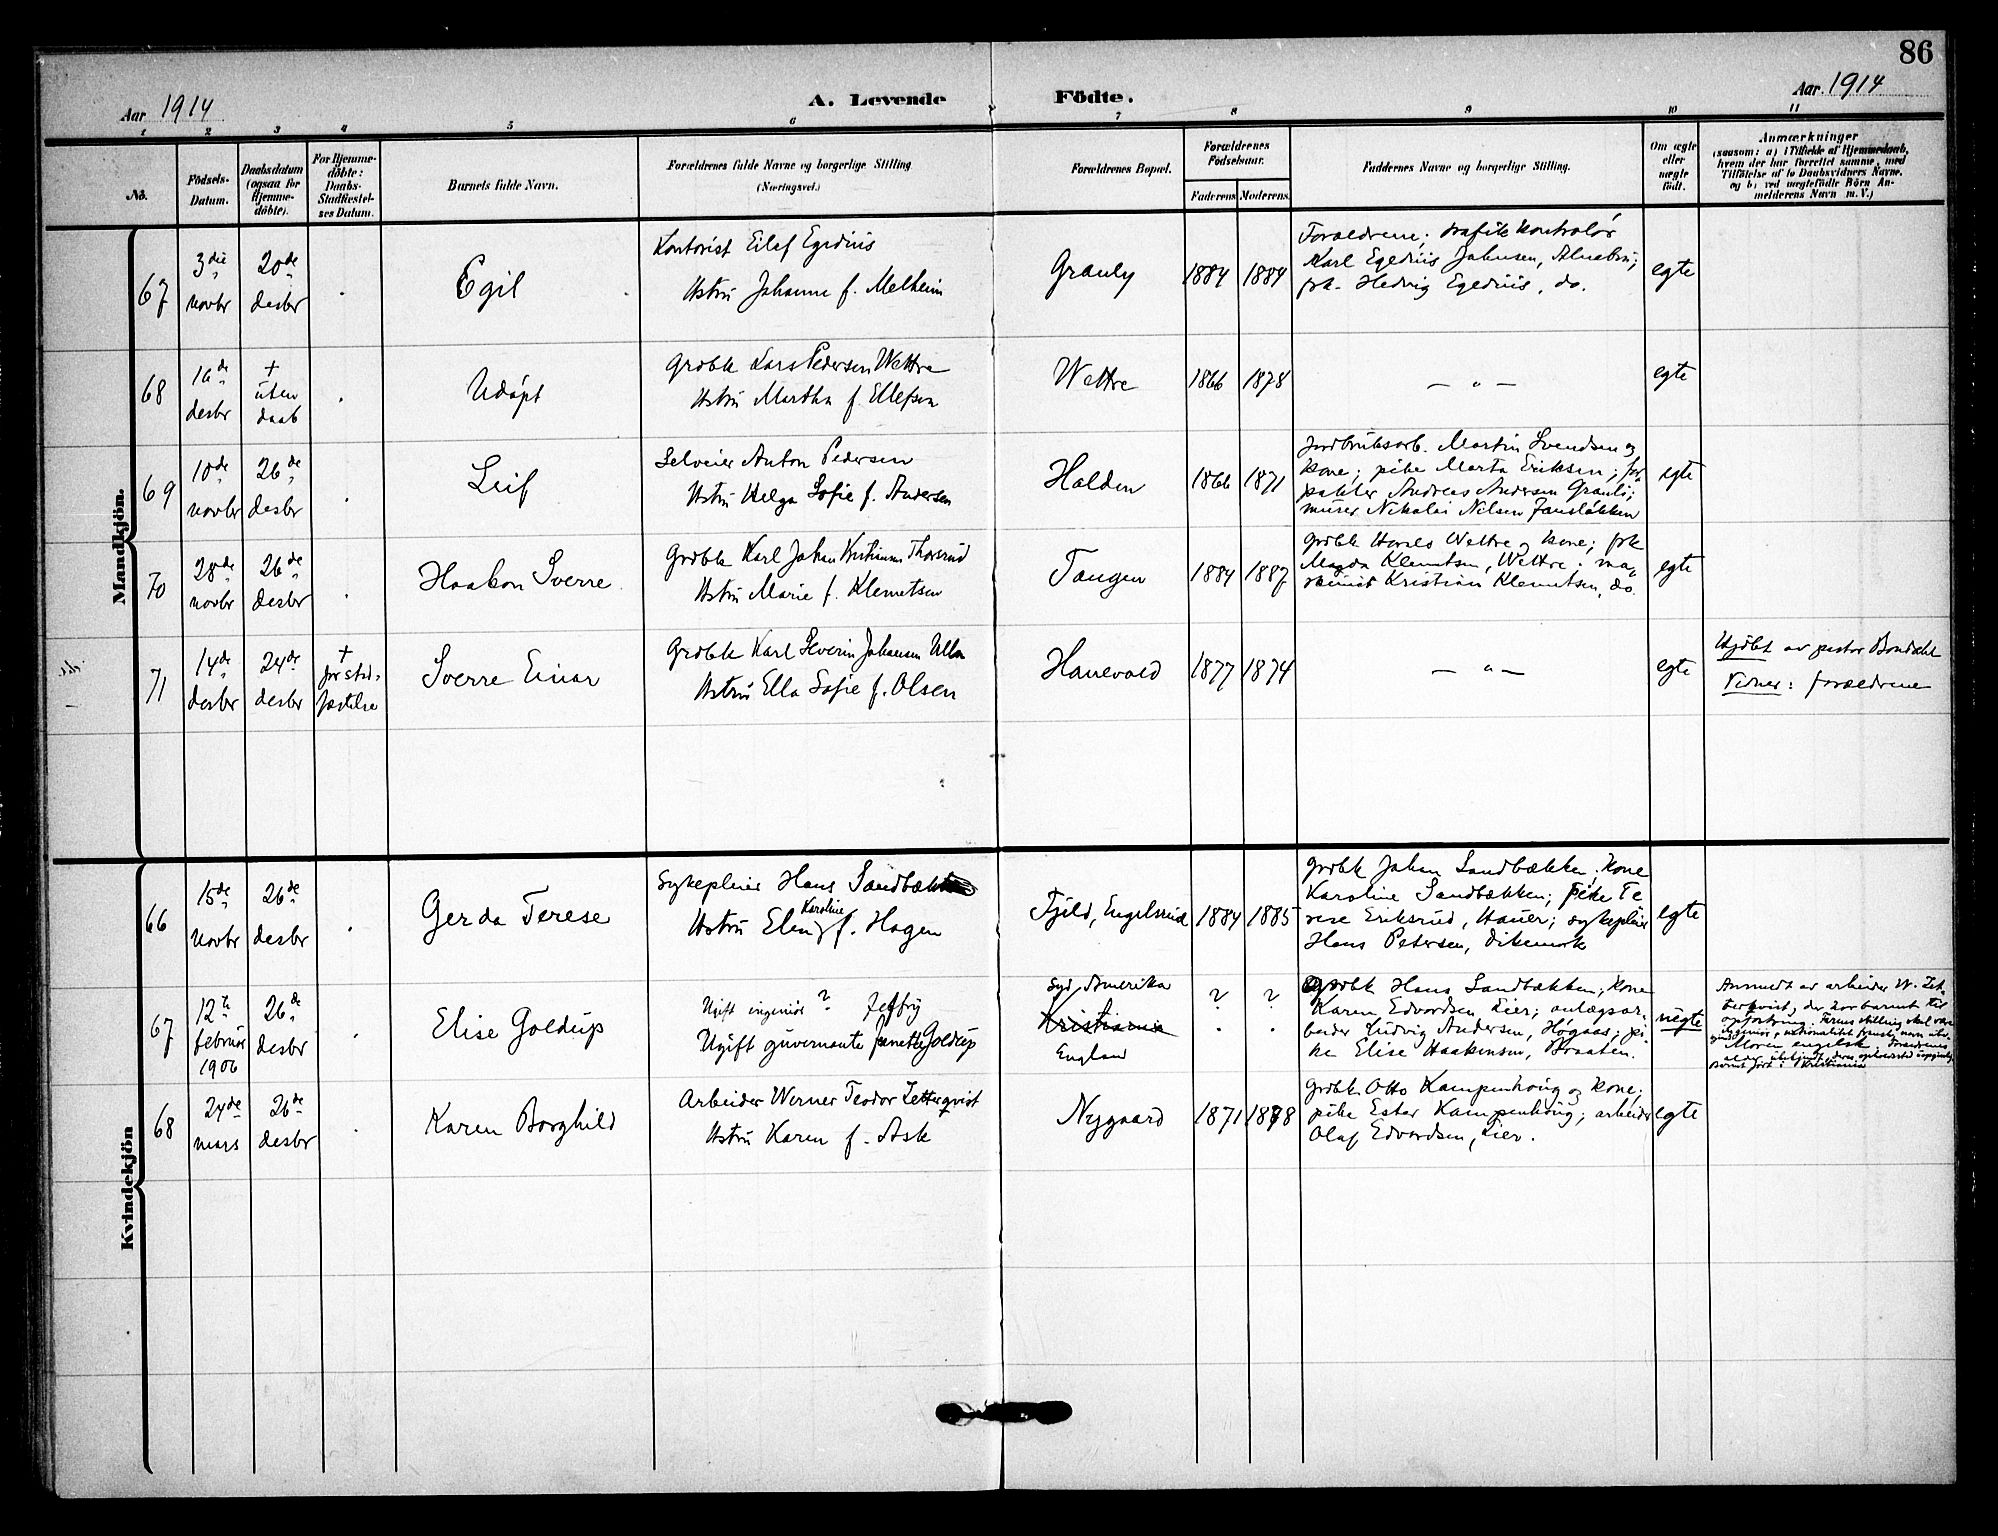 86
Aar 1914
A. Levende Födte.
Aar 1914
1 2 3 4 5 6 7 8 9 10 11
No.
Födsels-
Datum.
Daabsdatum
(ogsaa for
Hjemme-
döbte).
For Hjemme-
döbte:
Daabs-
Stadfæstel-
ses Datum.
Barnets fulde Navn.
Forældrenes fulde Navne og borgerlige Stilling.
(Næringsvei.)
Forældrenes Bopæl.
Forældrenes
Födselsaar.
Faderens Moderens
Faddernes Navne og borgerlige Stilling.
Om ægte
eller
uægte
født.
Anmærkninger
(saasom: a) i Tilfælde af Hjemmedaab,
hvem der har forrettet samme, med
Tilföielse af to Daabsvidners Navne,
og b) ved uægtefödte Börn An-
melderens Navn m.V.)
Mandkjön.
67
3die
novbr
20de
desbr
Egil
Kontorist Eilef Egedius
Hstru Johanne f. Melheim
Grauly
1884 1889
Forældrene; trafikkontrolør
Karl Egedius Johnsen, Alnabru;
frk. Hedvig Egedius, do.
egte
68
16de
desbr
+
uten
daab
Udøpt
Grdbk Lars Pedersen Wettre
Hstru Martha f. Ellefsen
Wettre
1866 1878
— „ —
egte
69
10de
novbr
26de
desbr
Leif
Selveier Anton Pedersen
Hstru Helga Sofie f. Andersen
Halden
1866 1871
Jordbruksarb. Martin Svendsen og
kone; pike Marta Eriksen; for-
pakter Andreas Andersen Grauli;
murer Nikolai Nilsen Jansløkken
egte
70
28de
novbr
26de
desbr
Haakon Sverre
Grdbk Karl Johan Kristiansen Thorsrud
Hstru Marie f. Klemetsen
Tangen
1884 1887
Grdbk Harals Wettre og kone; frk
Magda Klemetsen, Wettre; ma-
skinist Kristian Klemetsen, do.
egte
71
14de
desbr
24de
desbr
+
før stad-
fæstelse
Sverre Einar
Grdbk Karl Severin Johansen
Hstru Ella Sofie f. Olsen
Hanevold
1877 1874
— „ —
egte
Hjdøbt av pastor Bondahl
Vidner: forældrene
Kvindekjön
66
15de
novbr
26de
desbr
Gerda Terese
Sykepleier Hans Sandbækken
Karoline
Hstru Elen f. Hagen
Fjeld, Engelsrud
1884 1885
Grdbk Johan Sandbækken; kone
Karoline Sandbækken; pike Te
rese Eriksrud, Hauer; sykepleier
Hans Petersen, Dikemark
egte
67
12te
februar
1906
26de
desbr
Elise Goldup
Ugift ingeniør ? Jeffry
Ugift guvernante Janette Goldup
Syd Amerika
Kristiania
England
? ?
Grdbk Hans Sandbækken; kone
Karen Edvardsen Lier; anlægsar-
beider Ludvig Andersen, Høgaas; pi-
ke Elise Haakensen, Braaten.
uegte
Anmeldt av arbeider W. Zet-
terkvist, der har barnet til
opfostring. Farens stilling skal være
ingeniør, nationalitet fransk, navn
Moren engelsk. Forældrenes
Barnet født i Kristiania
68
24de
mars
26de
desbr
Karen Borghild
Arbeider Werner Teodor Zetterqvist
Hstru Karen f. Ask
Nygaard
1871 1878
Grdbk Otto Kampenhoug og kone;
pike Ester Kampenhoug; arbeider
Olaf Edvardsen, Lier.
egte